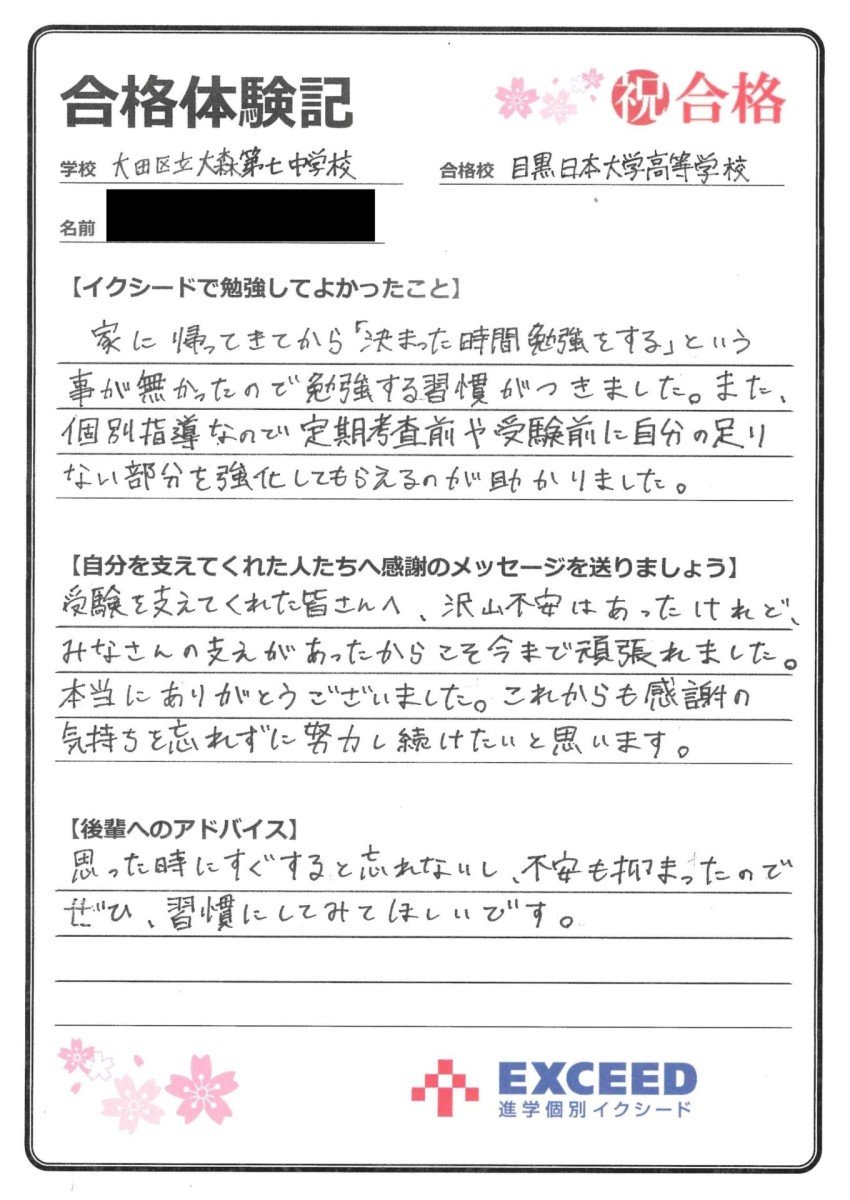 合格体験記
祝 合格
学校 大田区立大森第七中学校
合格校 目黒日本大学高等学校
名前
【イクシードで勉強してよかったこと】
家に帰ってきてから「決まった時間勉強をする」という
事が無かったので勉強する習慣がつきました。また、
個別指導なので定期考査前や受験前に自分の足り
ない部分を強化してもらえるのが助かりました。
【自分を支えてくれた人たちへ感謝のメッセージを送りましょう】
受験を支えてくれた皆さんへ、沢山不安はあったけれど、
みなさんの支えがあったからこそ今まで頑張れました。
本当にありがとうございました。これからも感謝の
気持ちを忘れずに努力し続けたいと思います。
【後輩へのアドバイス】
思った時にすぐすると忘れないし、不安も抑まったので
ぜひ、習慣にしてみてほしいです。
EXCEED
進学個別イクシード